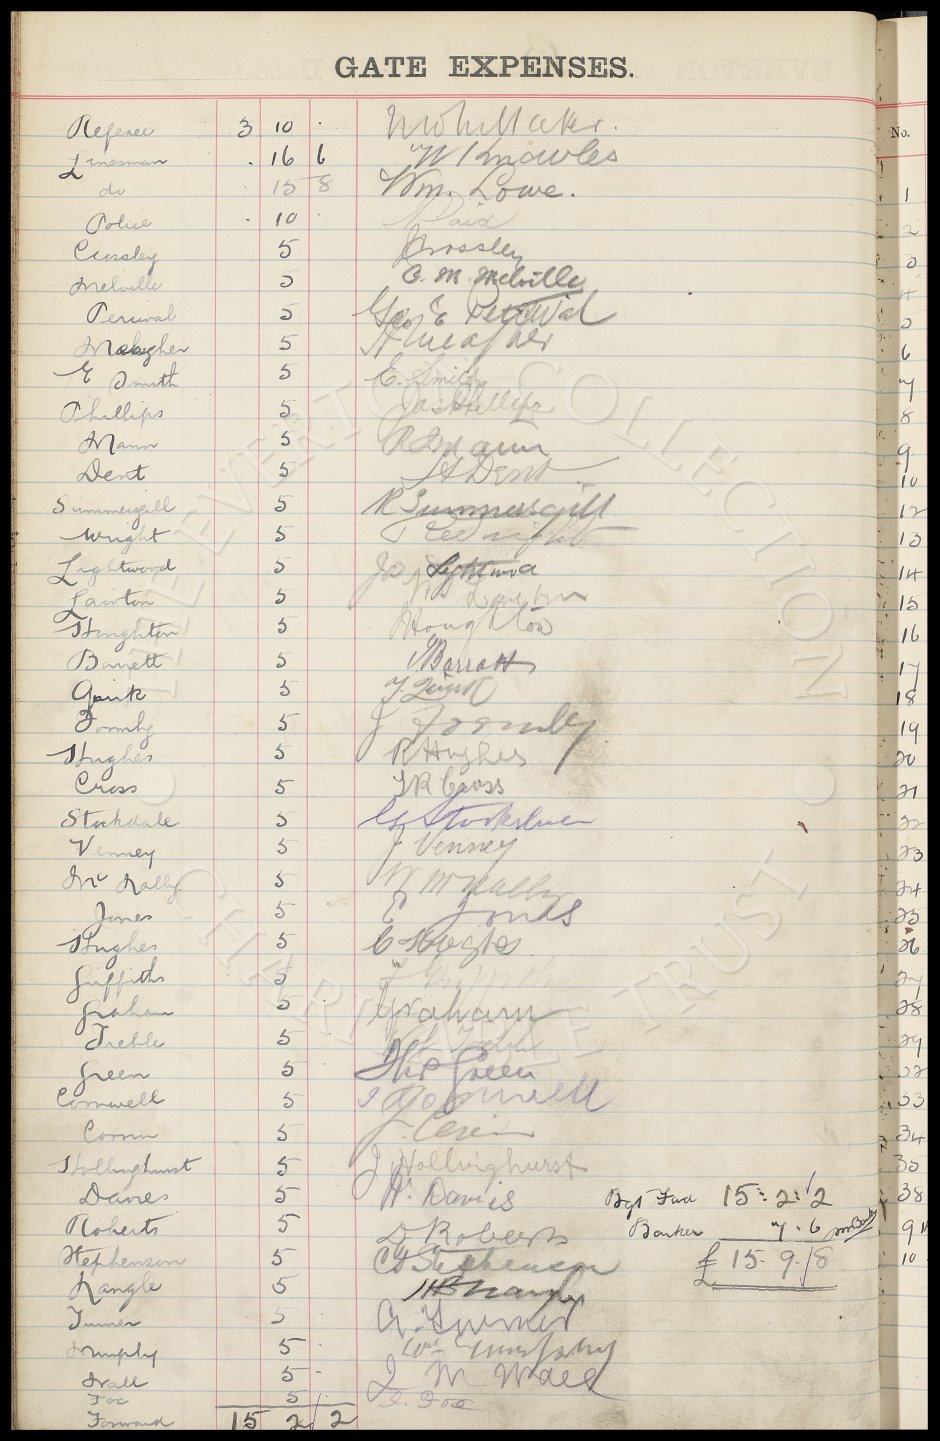 GATE EXPENSES.
Referee 3 10 . Whittaker.
Linesman . 16 6 W Knowles
do 15 8 Wm. Lowe.
Police . 10 . Paid
Crossley 5 Crossley
Melville 5 C. M. Melville
Percival 5 Geo E Percival
Meagher 5 Meagher
E Smith 5 E. Smith
Phillips 5 Jas Phillips
Mann 5 R Mann
Dent 5 Dent
Summersgill 5 R Summersgill
Wright 5 Wright
Lightwood 5 Jos Lightwood
Lawton 5 Lawton
Houghton 5 Houghton
Barrett 5 Barratt
Quirk 5 T. Quirk
Formby 5 J Formby
Hughes 5 R Hughes
Cross 5 T R Cross
Stockdale 5
Venney 5 J Venney
Mc Nally 5 W McNally
Jones 5 E Jones
Hughes 5 C Hughes
Griffiths 5
Graham 5 Graham
Treble 5
Green 5 Green
Cornwell 5 Cornwell
5
Hollinghurst 5 J Hollinghurst
Davies 5 Davis Bgt Fwd 15 : 2 : 2
Roberts 5 D Roberts Barker 7 . 6
Stephenson 5 Stephenson £ 15 . 9 . 8
Nangle 5
Turner 5 A. Turner
Murphy 5 Wm Murphy
Wall 5 J M Wall
Fox 5 Fox
Forward 15 2 2
No.
1
2
3
4
5
6
7
8
9
10
12
13
14
15
16
17
18
19
20
21
22
23
24
25
26
27
28
29
32
33
34
35
38
9
10
EVERTON COLLECTION
CHARITABLE TRUST